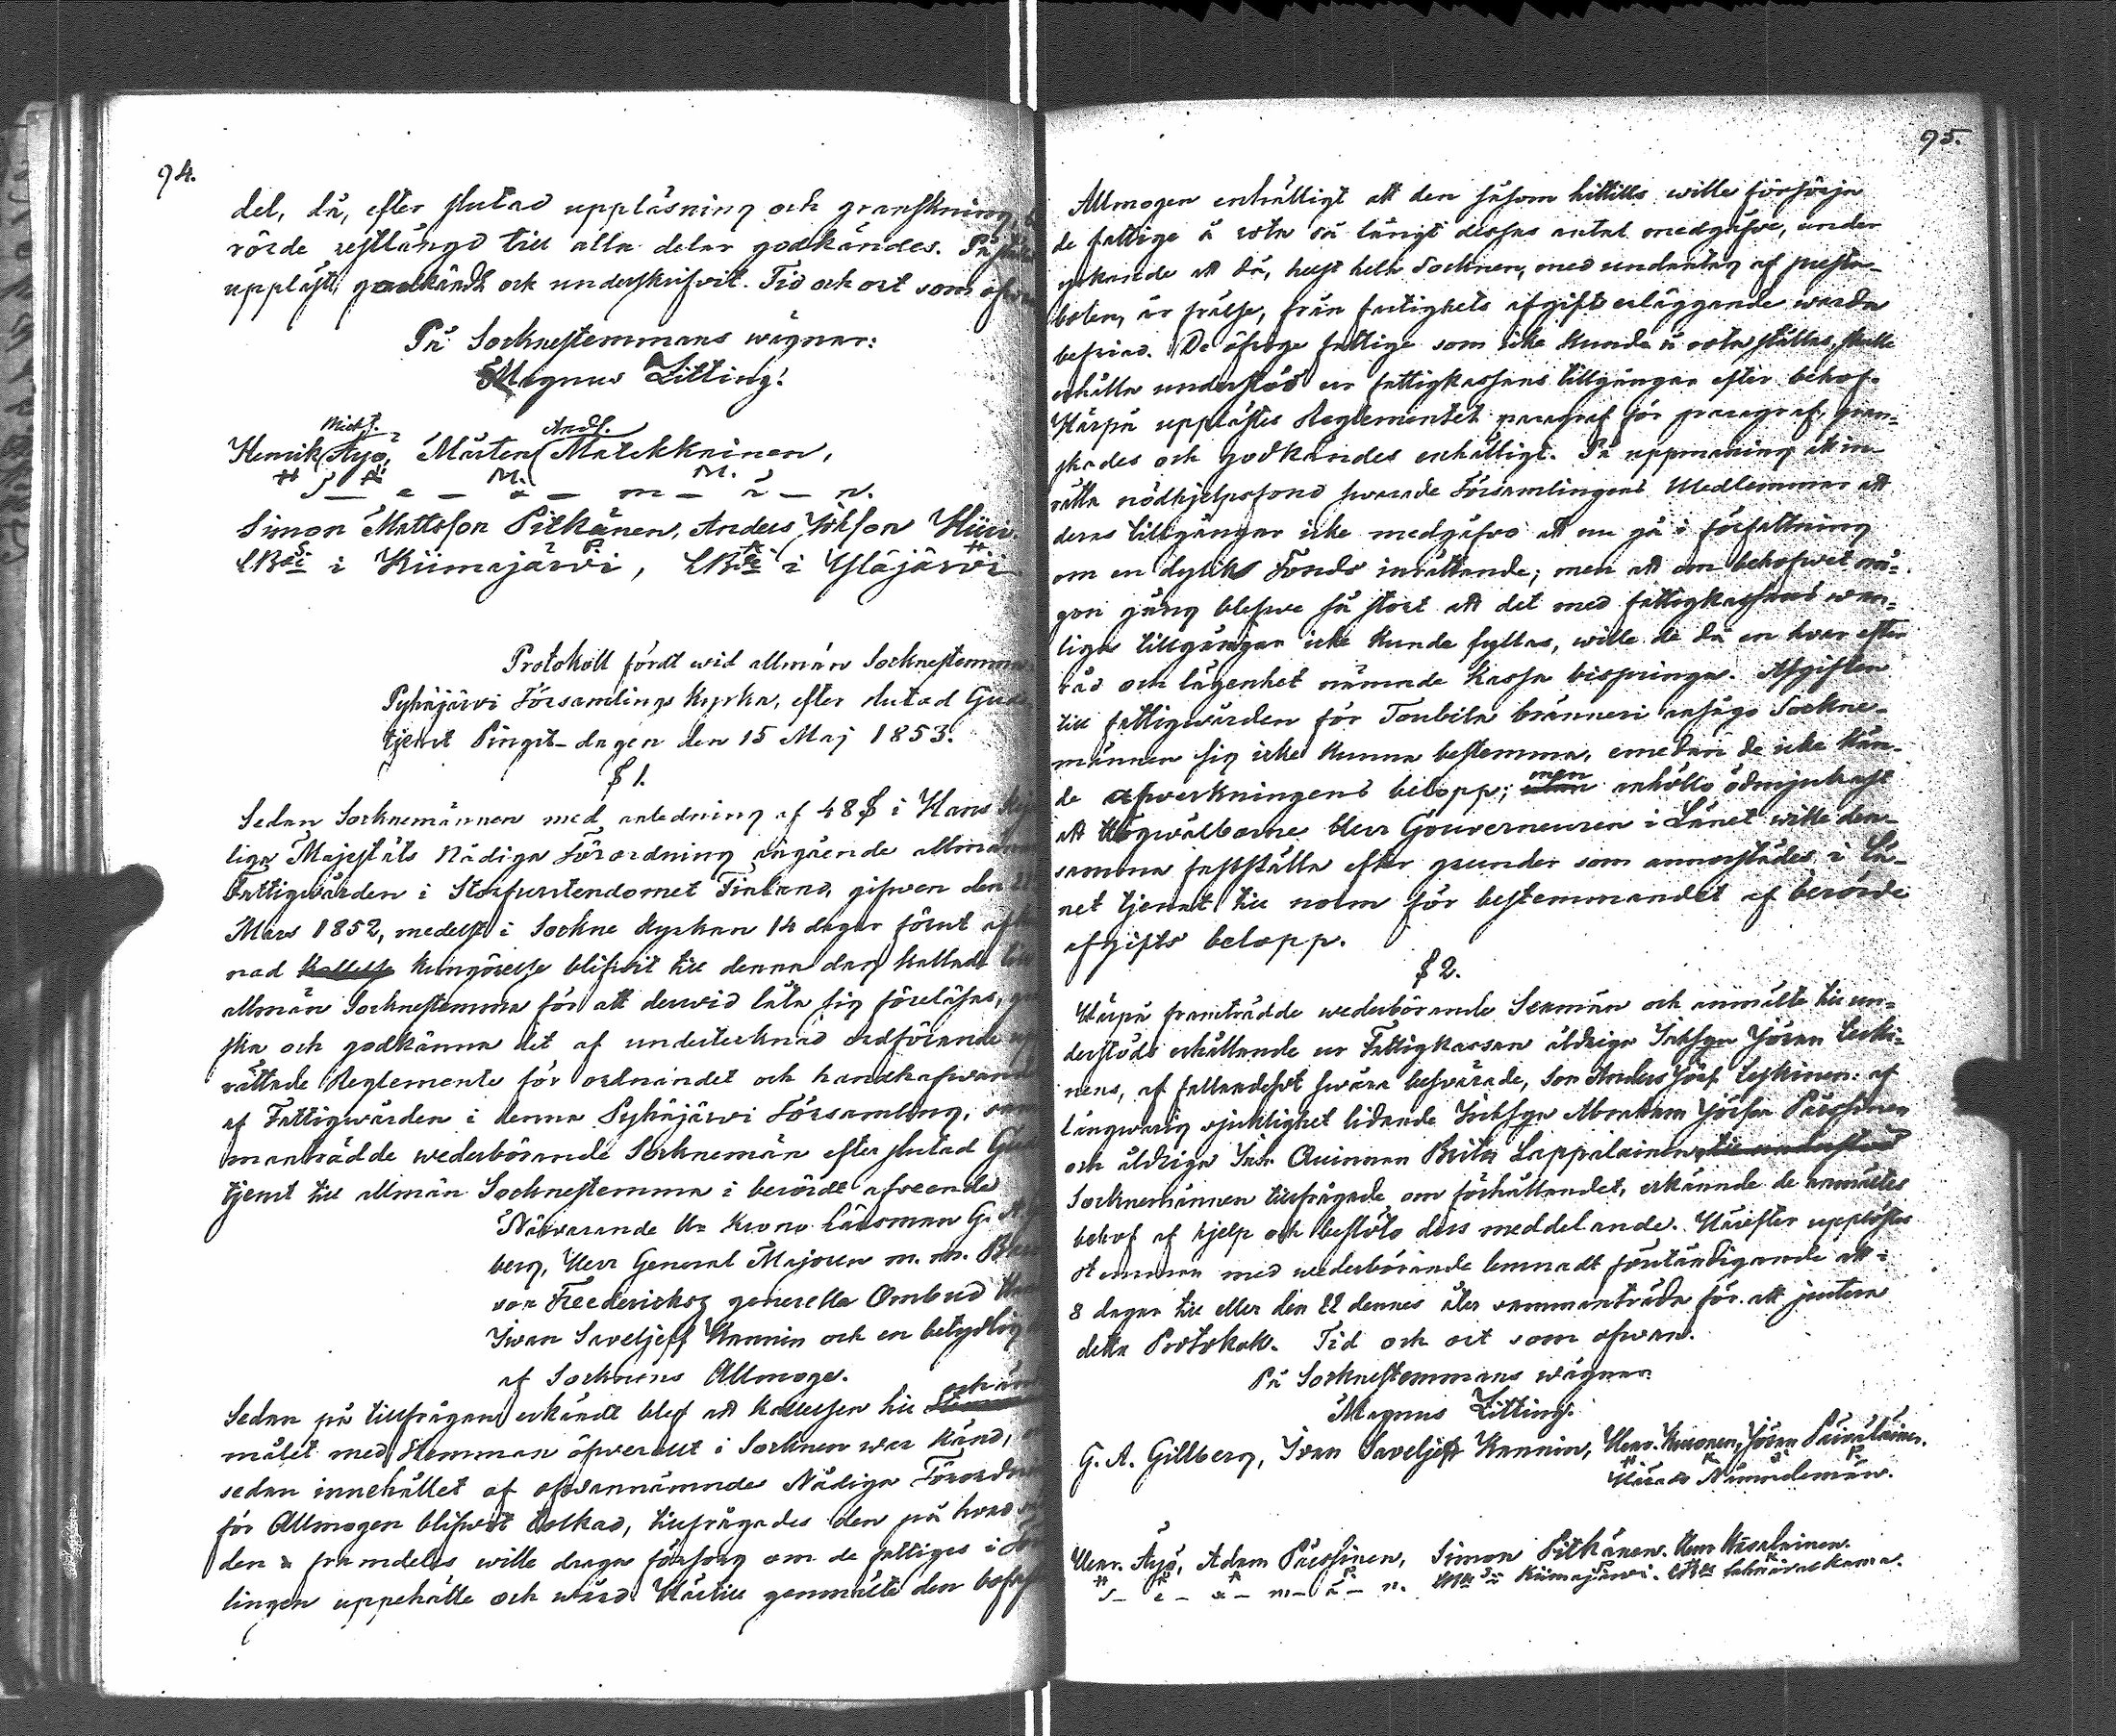 94.
del, då, efter slutad uppläsning och granskning
rörde restlängd till alla delar godkändes.
uppläst, godkändt och underskrifvit. Tid och ort som ofvan
På Socknestemmans wägnar:
Magnus Zitting.
Mickf. Andf.
Henrik Äyö, Mårten Matikkainen,
H Ä M. M.
S — e — x — m — ä — n.
Simon Mattsson Pitkänen, Anders Johsson
S P A H
LBde i Kiimajärvi, LBde i Yläjärvi
Protokoll fördt wid allmän Socknestemma
Pyhäjärvi Församlings Kyrka, efter slutad Guds
tjenst Pingst-dagen den 15 Maj 1853.
§ 1.
Sedan Socknemännen med anledning af 48 § i Hans
liga Majestäts Nådiga Förordning angående allmänna
Fattigwården i Storfurstendömet Finland, gifwen den
Mars 1852, medelst i Sockne Kyrkan 14 dagar förut
nad Kallelse kungörelse blifwit till denna dag kallade till
allmän Socknestemma för att derwid låta sig föreläsas,
ska och godkänna det af undertecknad ordförande
rättade Reglemente för ordnandet och handhafwandet
af Fattigwården i denna Pyhäjärvi Församling, sam
manträdde wederbörande Socknemän efter slutad Guds
tjenst till allmän Socknestemma i berördt afseende
Närwarande Hr Krono Länsman G. A.
berg, Herr General Majoren m. m.
von Freedericksz generella Ombud
Ivan Saveljeff Hannin och en betydlig
af Socknens Allmoge.
och än
Sedan på tillfrågan erkändt blef att kallelsen till
målet med Stemman öfverallt i Socknen war känd,
sedan innehållet af ofwannämnde Nådiga Förordning
för Allmogen blifwit tolkad, tillfrågades den på hvad
den framdeles wille draga försorg om de fattiges i
lingen uppehälle och wård. Härtill genmälte den
95.
Allmogen enhälligt att den såsom hittills wille försörja
de fattige å rota så långt dessas antal medgåfve, under
yrkande att då, helst hela Socknen, med undantag af presta-
bolen, är frälse, från fattighets afgifts erläggande warda
befriad. De öfrige fattige som icke kunde å rota ställas, skulle
erhålla understöd ur fattigkassans tillgångar efter behof.
Härpå upplästes Reglementet paragraf för paragraf, gran-
skades och godkändes enhälligt. På uppmaning att in-
rätta nödhjelpsfond swarade Församlingens Medlemmar att
deras tillgångar icke medgåfvo att nu gå i författning
om en dylik Fonds inrättande; men att om behofwet nå-
gon gång blefwe så stort att det med fattigkassans wan-
liga tillgångar icke kunde fyllas, wille de då en hvar efter
råd och lägenhet nämnde Kassa bispringa. Afgiften
till fattigwården för Toubila bränneri ansågo Sockne-
männen sig icke kunna bestemma, emedan de icke kän-
men
de afverkningens belopp; utan anhöllo ödmjukast
att Högwälborne Herr Gouverneuren i Länet wille den-
samma fastställa efter grunder som annorstädes i Lä-
net tjenat till norm för bestemmandet af berörde
afgifts belopp.
§ 2.
Härpå framträdde wederbörande Sexmän och anmälte till un-
derstöds erhållande ur Fattigkassan åldriga Inhsgn Jöran Leski-
nens, af fallandesot swåra beswärade, Son Anders Jörs. Leskinen: af
långwarig sjuklighet lidande Inhsgn Abraham Jörsson Pärssinen
och åldriga Inh. Quinnan Brita Lappalainen till understöd
Socknemännen tillfrågade om förhållandet, erkände de anmältes
behof af hjelp och beslöto dess meddelande. Härefter upplöstes
stemman med wederbörande lemnadt föreständigande att
8 dagar till eller den 22 dennes åter sammanträda för att justera
detta Protokoll. Tid och ort som ofwan.
På Socknestemmans wägnar
Magnus Zitting.
G. A. Gillberg, Ivan Saveljeff Hannin, Henr. Kuronen, Jöran Päiväläinen.
H K J P
Härads Nämndemän.
Henr. Äyö, Adam Pärssinen, Simon Pitkänen.
H Ä A P S P
S — e — x — m — ä — n. LBde i Kiimajärvi.